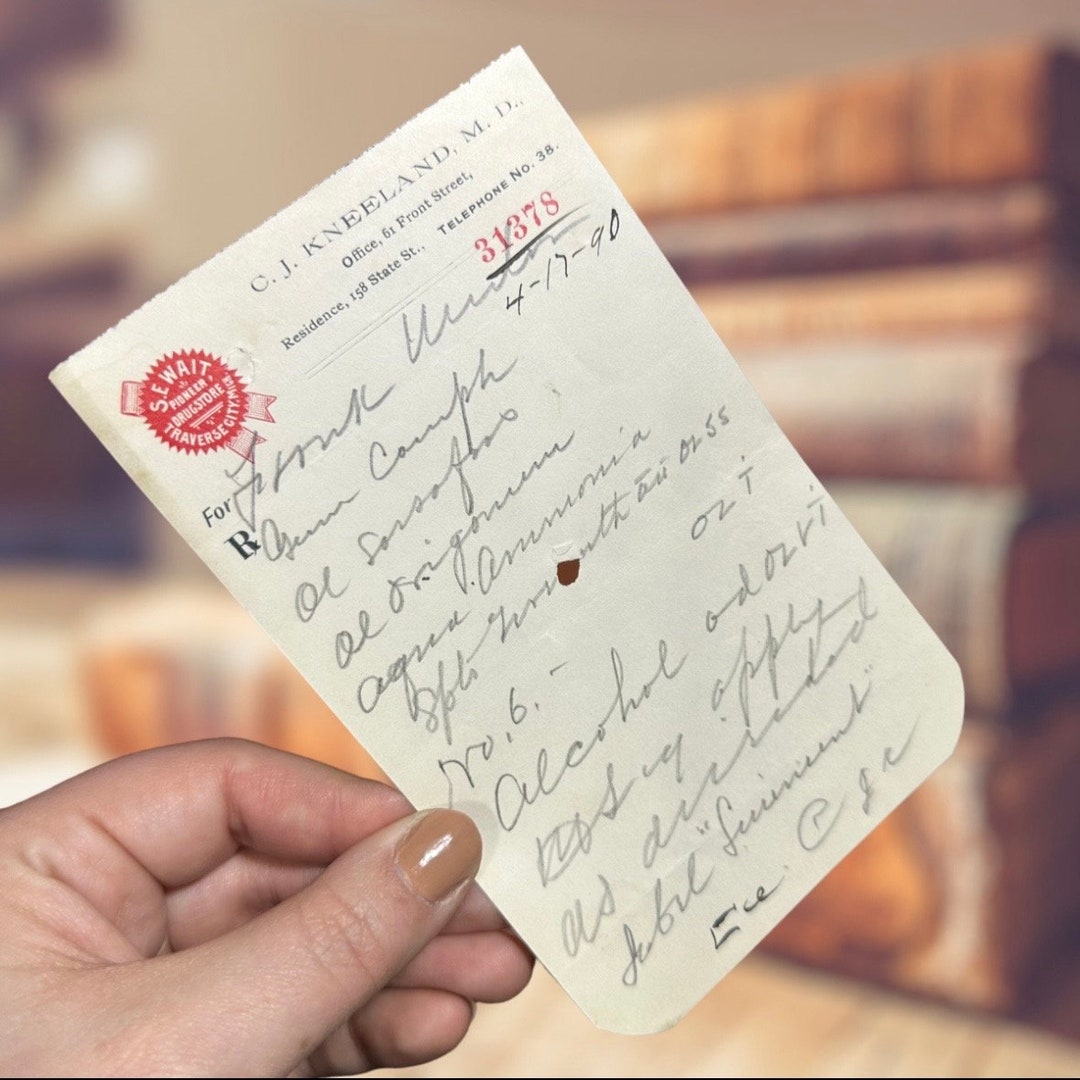 C. J. KNEELAND, M. D.,
Office, 61 Front Street,
Residence, 158 State St., TELEPHONE NO. 38.
31378
4-17-90
S.E. WAIT
PIONEER
DRUGSTORE
TRAVERSE CITY, MICH
For Frank
℞ Gum Camph
Ol Sassafras
Ol Origanum
Aqua Ammonia
āā oz ss
No, 6. - oz i
Alcohol ad oz vi
apply
as directed
"Liniment"